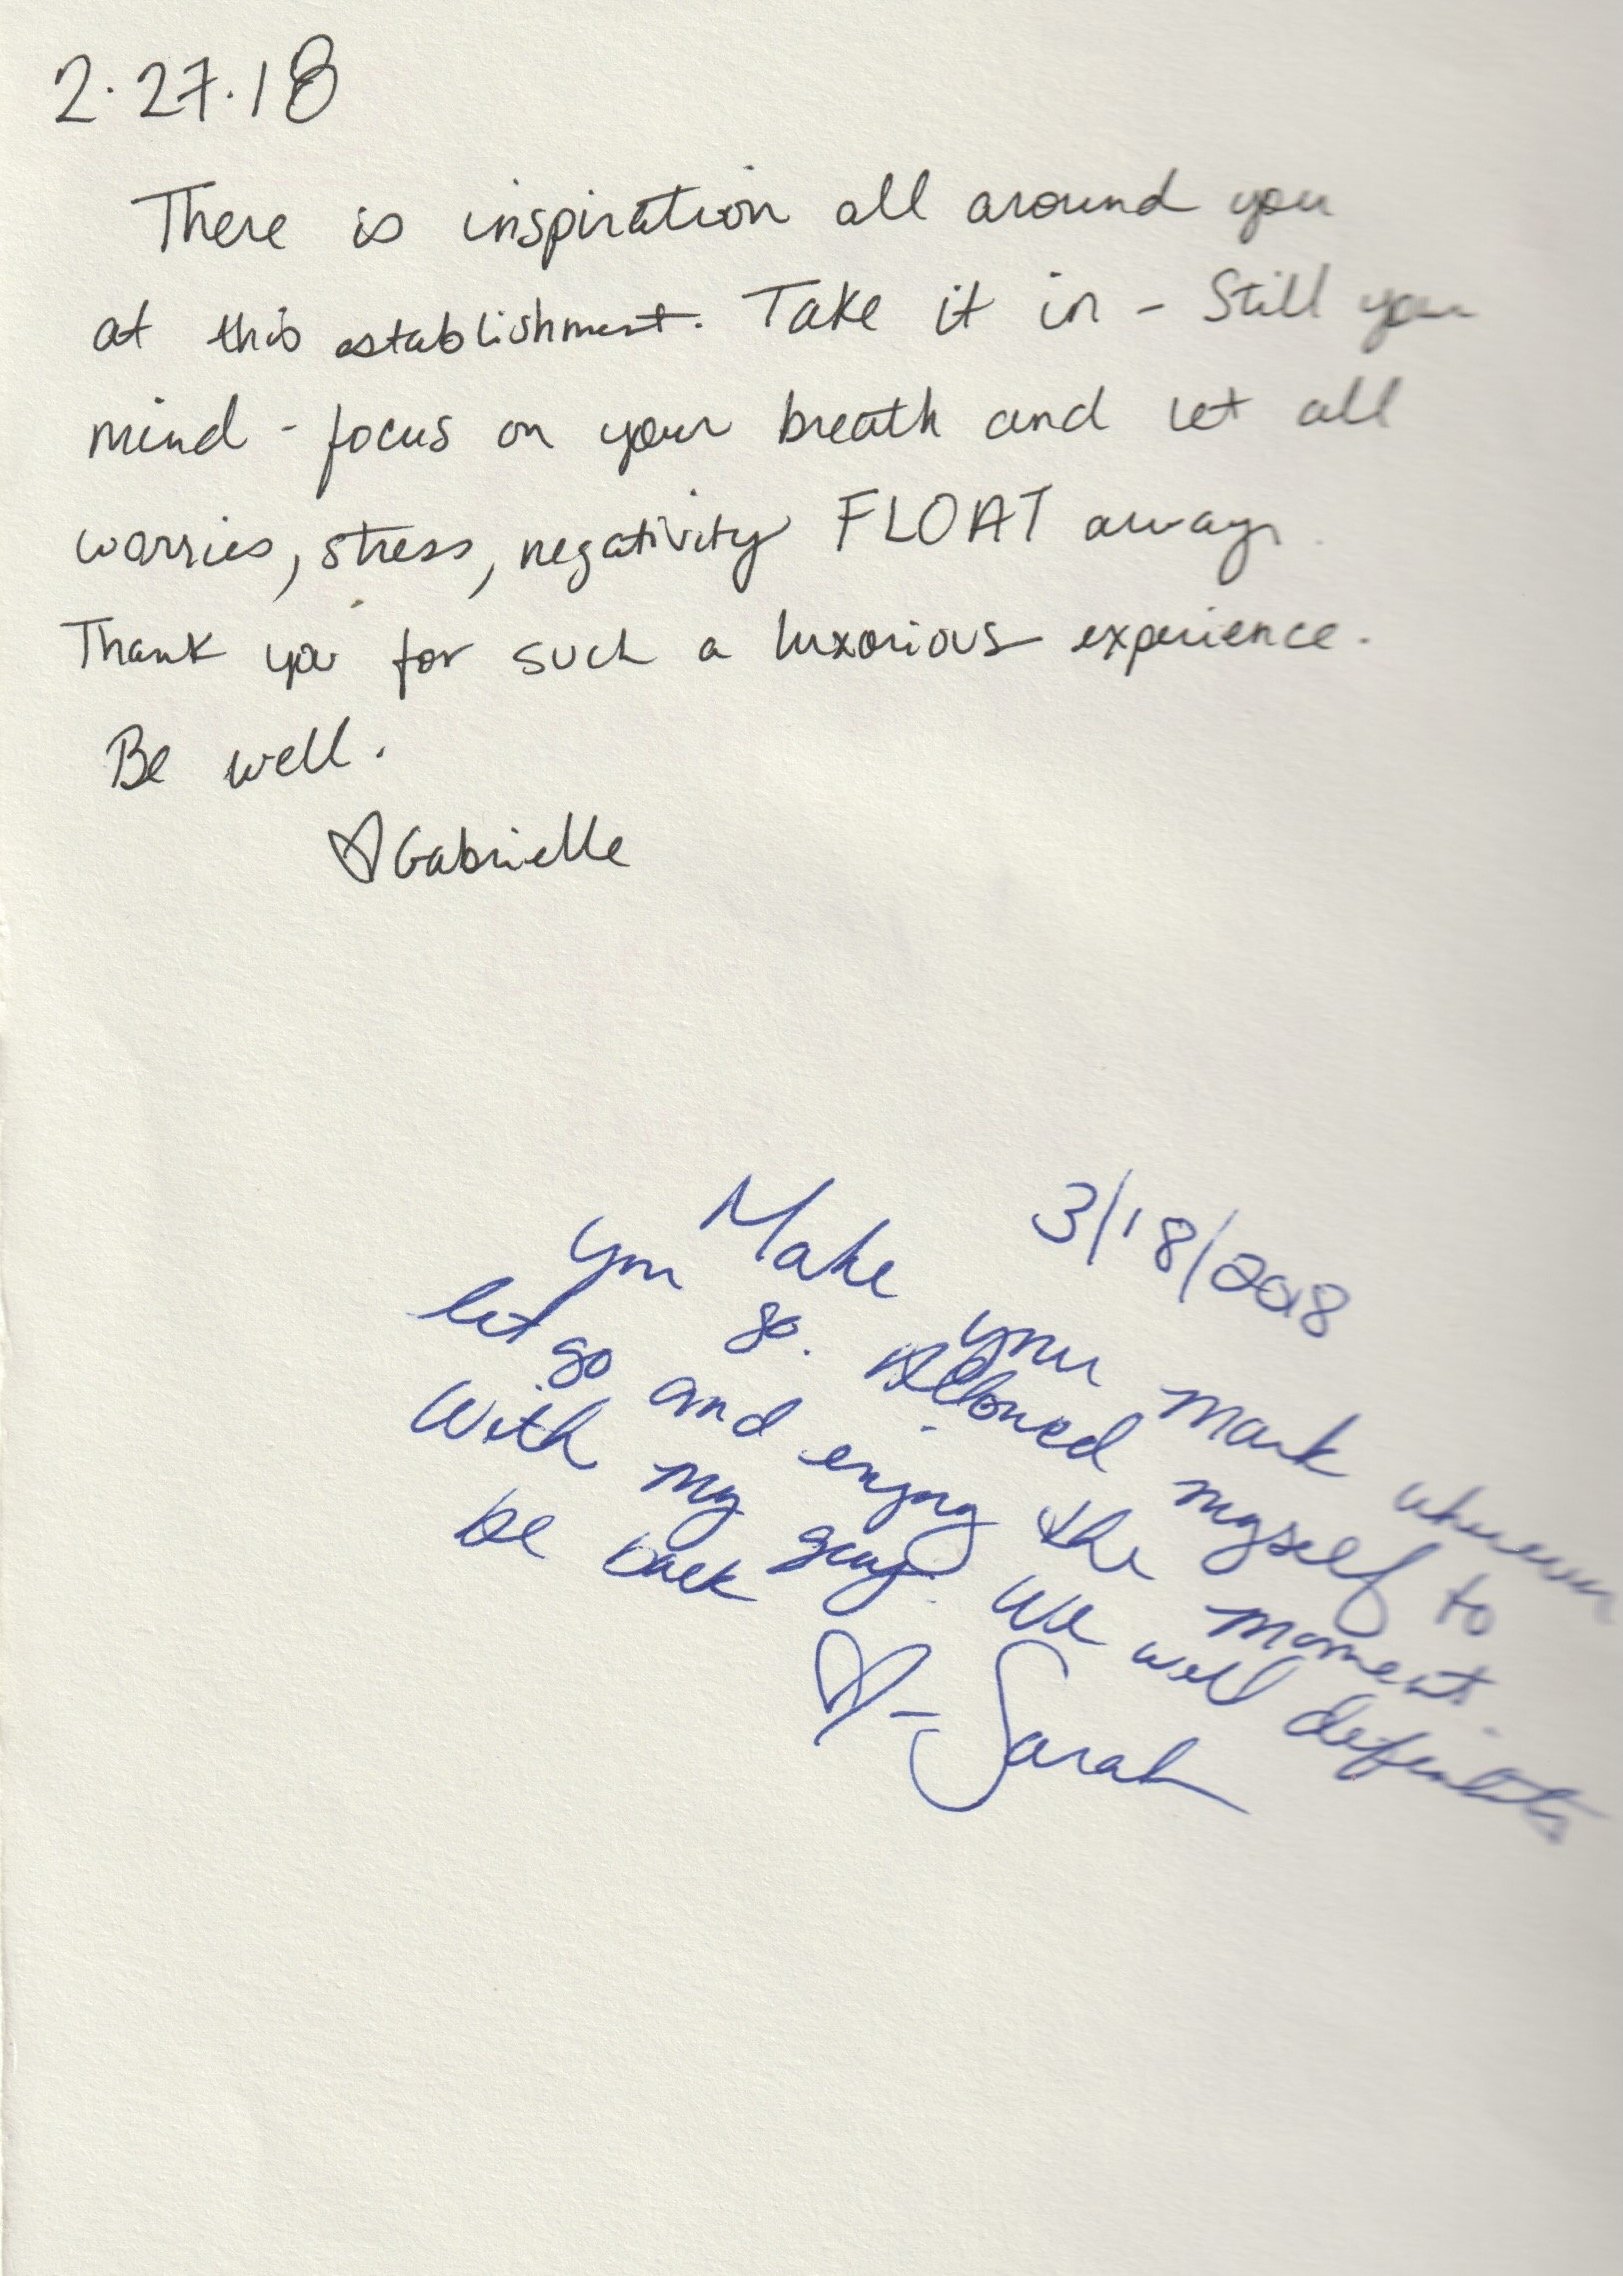 2.27.18
There is inspiration all around you
at this establishment. Take it in - Still your
mind - focus on your breath and let all
worries, stress, negativity FLOAT away.
Thank you for such a luxorious experience.
Be well.
♡Gabrielle
3/18/2018
Make your mark wherever
you go. Allowed myself to
let go and enjoy the moment.
With my guy. We will definitely
be back
♡-Sarah